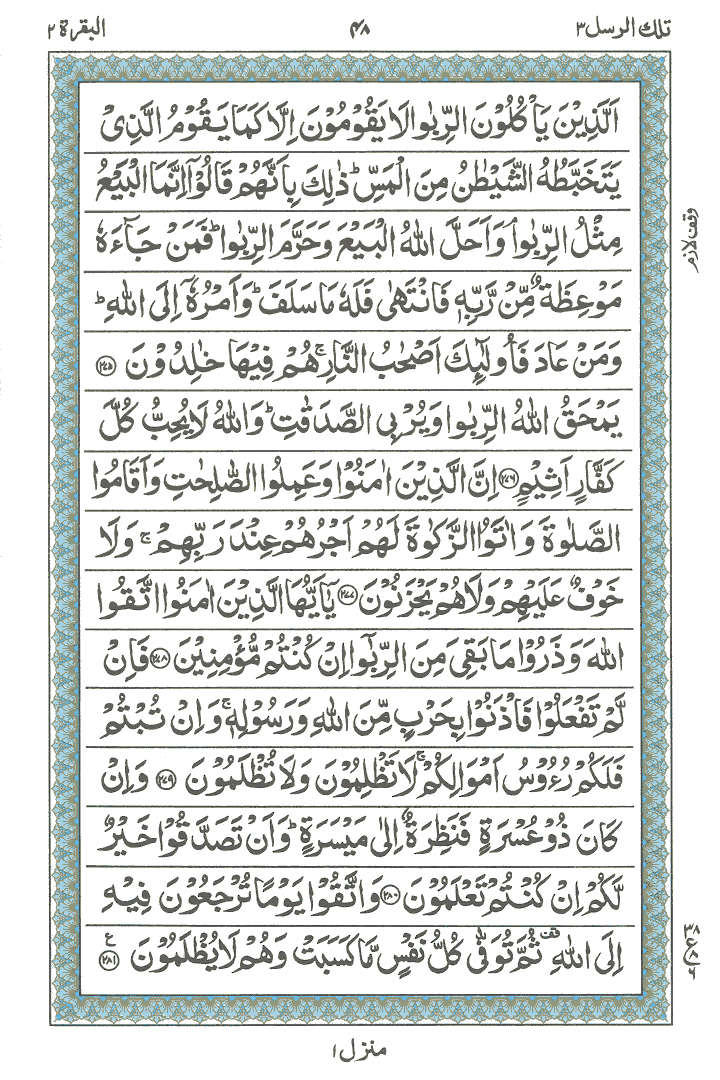 تلك الرسل ٣ ٤٨ البقرة ٢
اَلَّذِیْنَ یَاْكُلُوْنَ الرِّبٰوا لَا یَقُوْمُوْنَ اِلَّا كَمَا یَقُوْمُ الَّذِیْ
یَتَخَبَّطُهُ الشَّیْطٰنُ مِنَ الْمَسِّ ؕ ذٰلِكَ بِاَنَّهُمْ قَالُوْۤا اِنَّمَا الْبَیْعُ
مِثْلُ الرِّبٰوا ۘ وَ اَحَلَّ اللّٰهُ الْبَیْعَ وَ حَرَّمَ الرِّبٰوا ؕ فَمَنْ جَآءَهٗ
وقف لازم
مَوْعِظَةٌ مِّنْ رَّبِّهٖ فَانْتَهٰی فَلَهٗ مَا سَلَفَ ؕ وَ اَمْرُهٗۤ اِلَی اللّٰهِ ؕ
وَ مَنْ عَادَ فَاُولٰٓىِٕكَ اَصْحٰبُ النَّارِ ۚ هُمْ فِیْهَا خٰلِدُوْنَ ﴿۲۷۵﴾
یَمْحَقُ اللّٰهُ الرِّبٰوا وَ یُرْبِی الصَّدَقٰتِ ؕ وَ اللّٰهُ لَا یُحِبُّ كُلَّ
كَفَّارٍ اَثِیْمٍ ﴿۲۷۶﴾ اِنَّ الَّذِیْنَ اٰمَنُوْا وَ عَمِلُوا الصّٰلِحٰتِ وَ اَقَامُوا
الصَّلٰوةَ وَ اٰتَوُا الزَّكٰوةَ لَهُمْ اَجْرُهُمْ عِنْدَ رَبِّهِمْ ۚ وَ لَا
خَوْفٌ عَلَیْهِمْ وَ لَا هُمْ یَحْزَنُوْنَ ﴿۲۷۷﴾ یٰۤاَیُّهَا الَّذِیْنَ اٰمَنُوا اتَّقُوا
اللّٰهَ وَ ذَرُوْا مَا بَقِیَ مِنَ الرِّبٰۤوا اِنْ كُنْتُمْ مُّؤْمِنِیْنَ ﴿۲۷۸﴾ فَاِنْ
لَّمْ تَفْعَلُوْا فَاْذَنُوْا بِحَرْبٍ مِّنَ اللّٰهِ وَ رَسُوْلِهٖ ۚ وَ اِنْ تُبْتُمْ
فَلَكُمْ رُءُوْسُ اَمْوَالِكُمْ ۚ لَا تَظْلِمُوْنَ وَ لَا تُظْلَمُوْنَ ﴿۲۷۹﴾ وَ اِنْ
كَانَ ذُوْ عُسْرَةٍ فَنَظِرَةٌ اِلٰی مَیْسَرَةٍ ؕ وَ اَنْ تَصَدَّقُوْا خَیْرٌ
لَّكُمْ اِنْ كُنْتُمْ تَعْلَمُوْنَ ﴿۲۸۰﴾ وَ اتَّقُوْا یَوْمًا تُرْجَعُوْنَ فِیْهِ
اِلَی اللّٰهِ ۫ ثُمَّ تُوَفّٰی كُلُّ نَفْسٍ مَّا كَسَبَتْ وَ هُمْ لَا یُظْلَمُوْنَ ﴿۲۸۱﴾ ع
۳۸ ع ۸ ۶
منزل ١